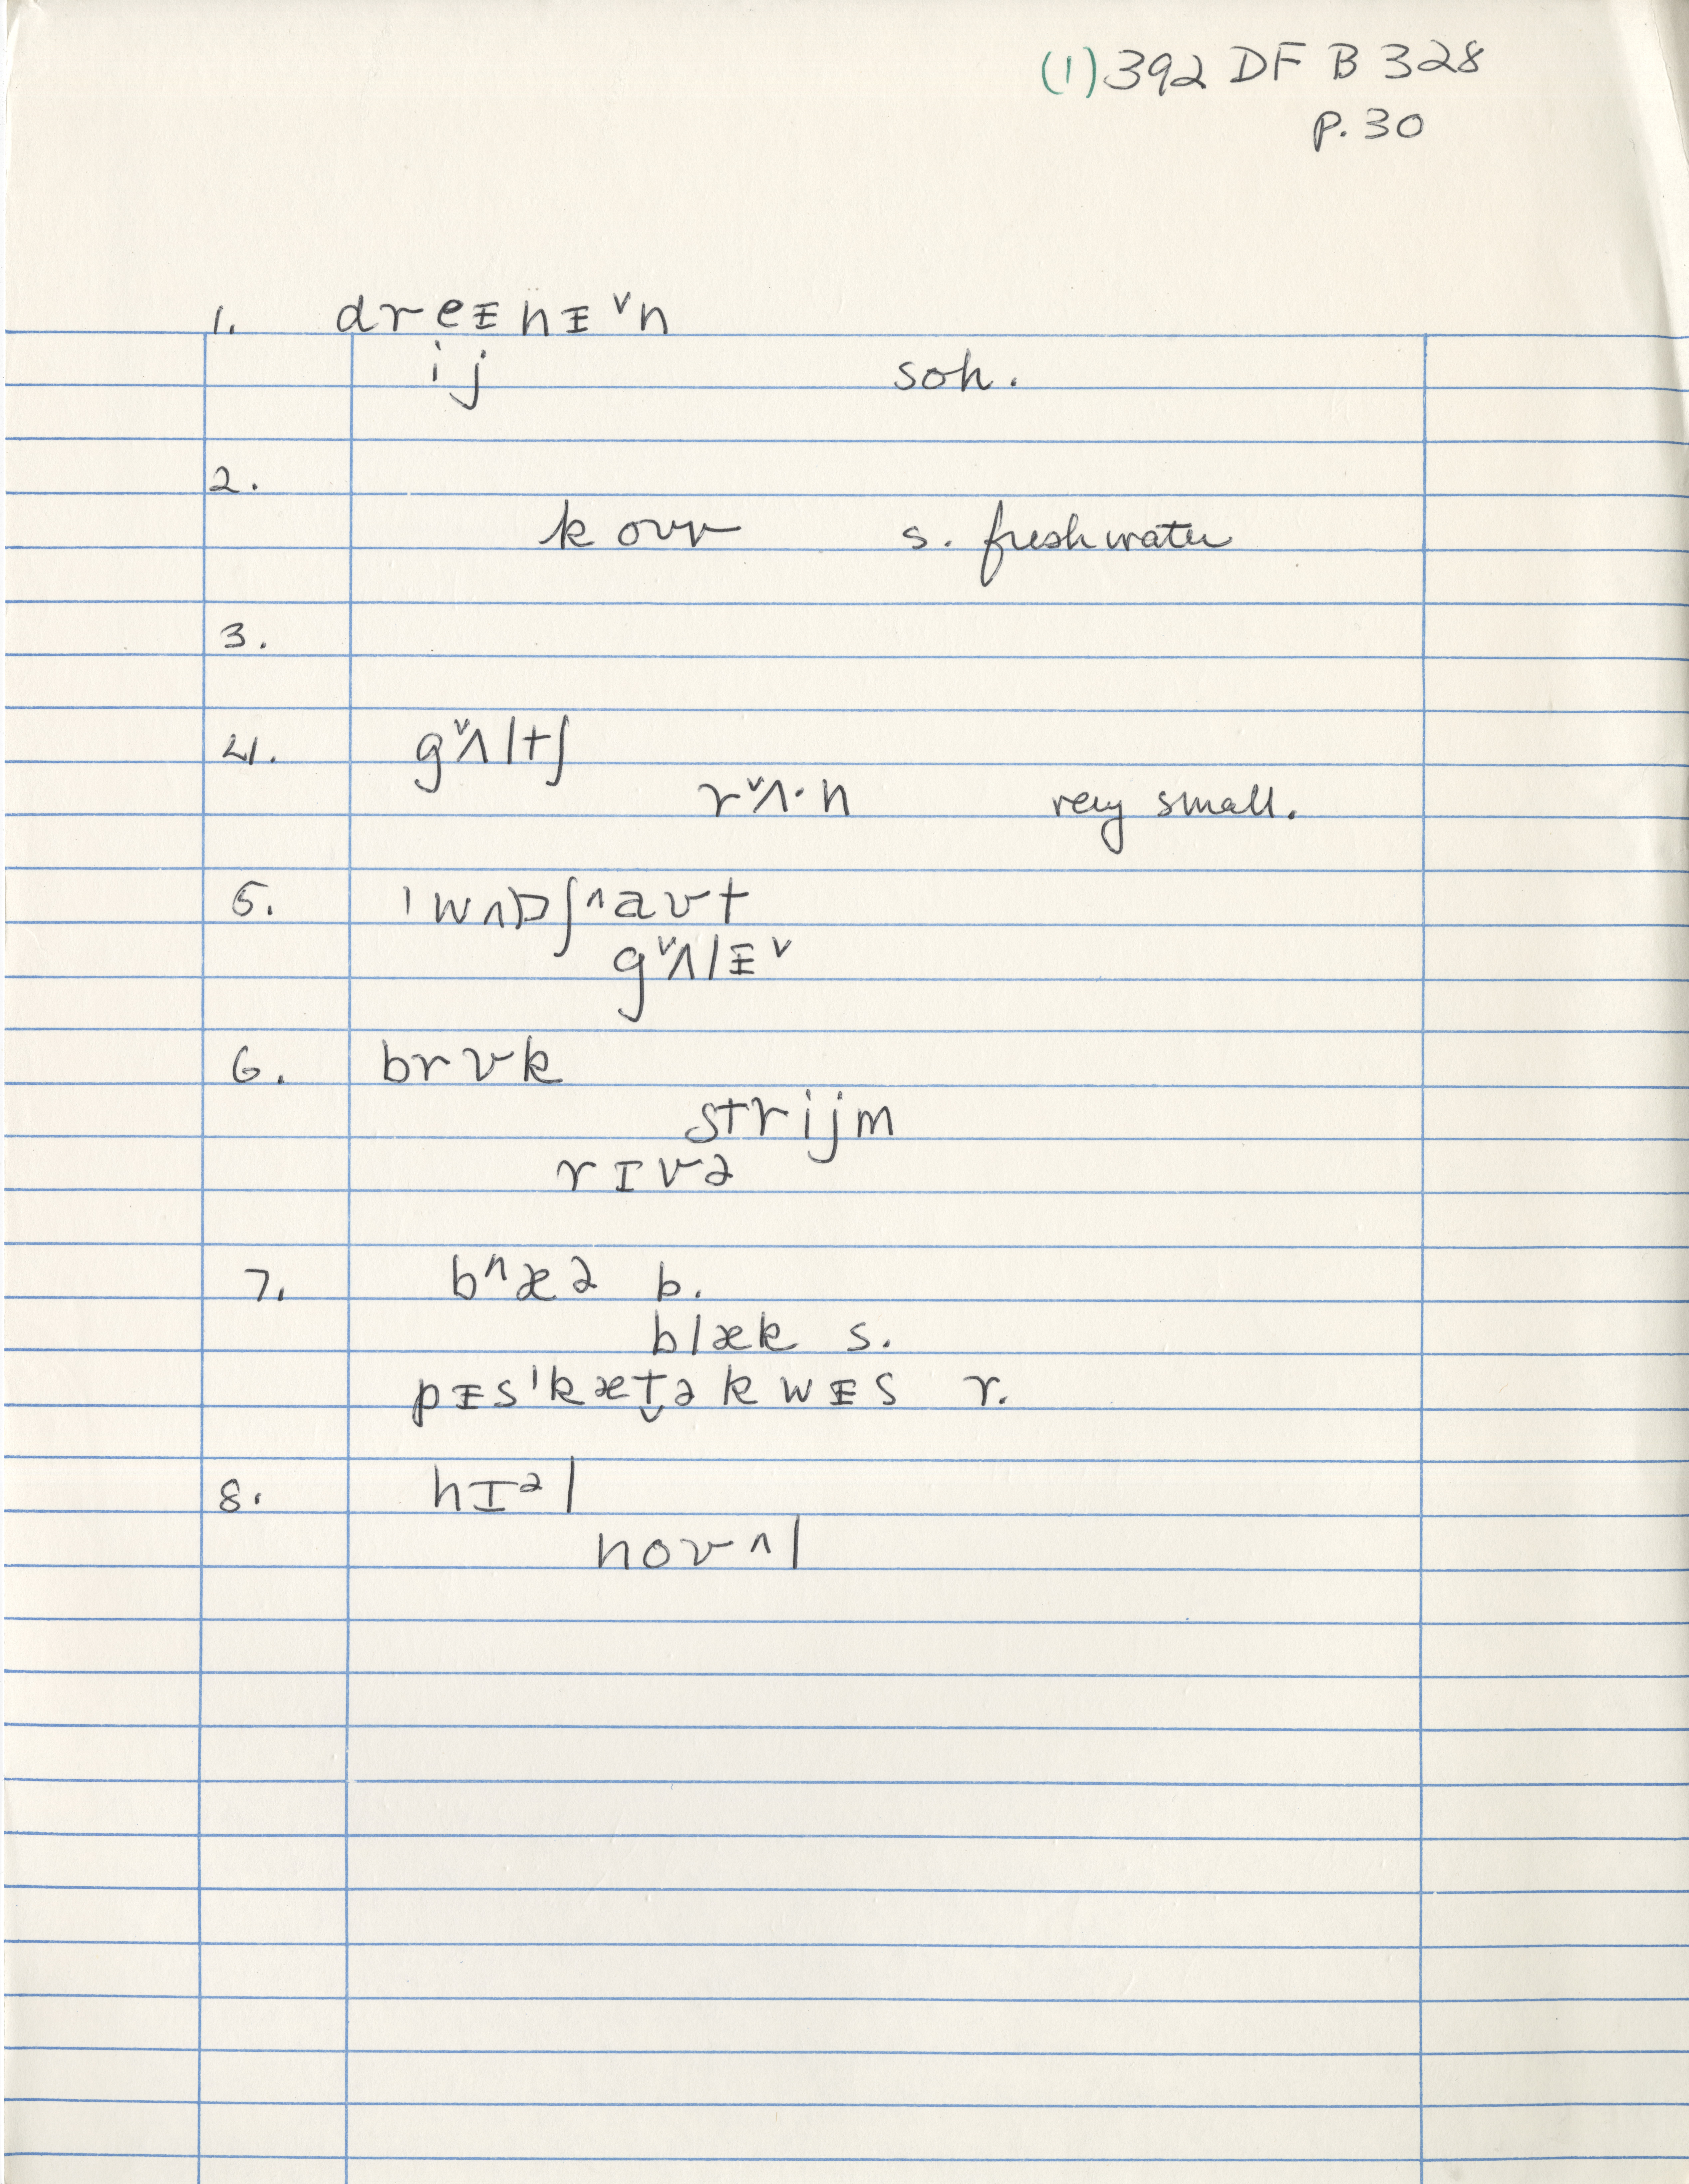 (1) 392 DF B 328
p. 30
1. dreᵻnᵻ˅n
ij soh.
2.
k oʊʊ s. freshwater
3.
4. g˅ʌltʃ
r˅ʌ·n very small.
5. ˈwɒʃ^aʊt
g˅ʌlᵻ˅
6. brʊk
strijm
rɪvə
7. b^æə b.
blæk s.
pᵻsˈkæt̬əkwᵻs r.
8. hɪᵊl
noʊ^l